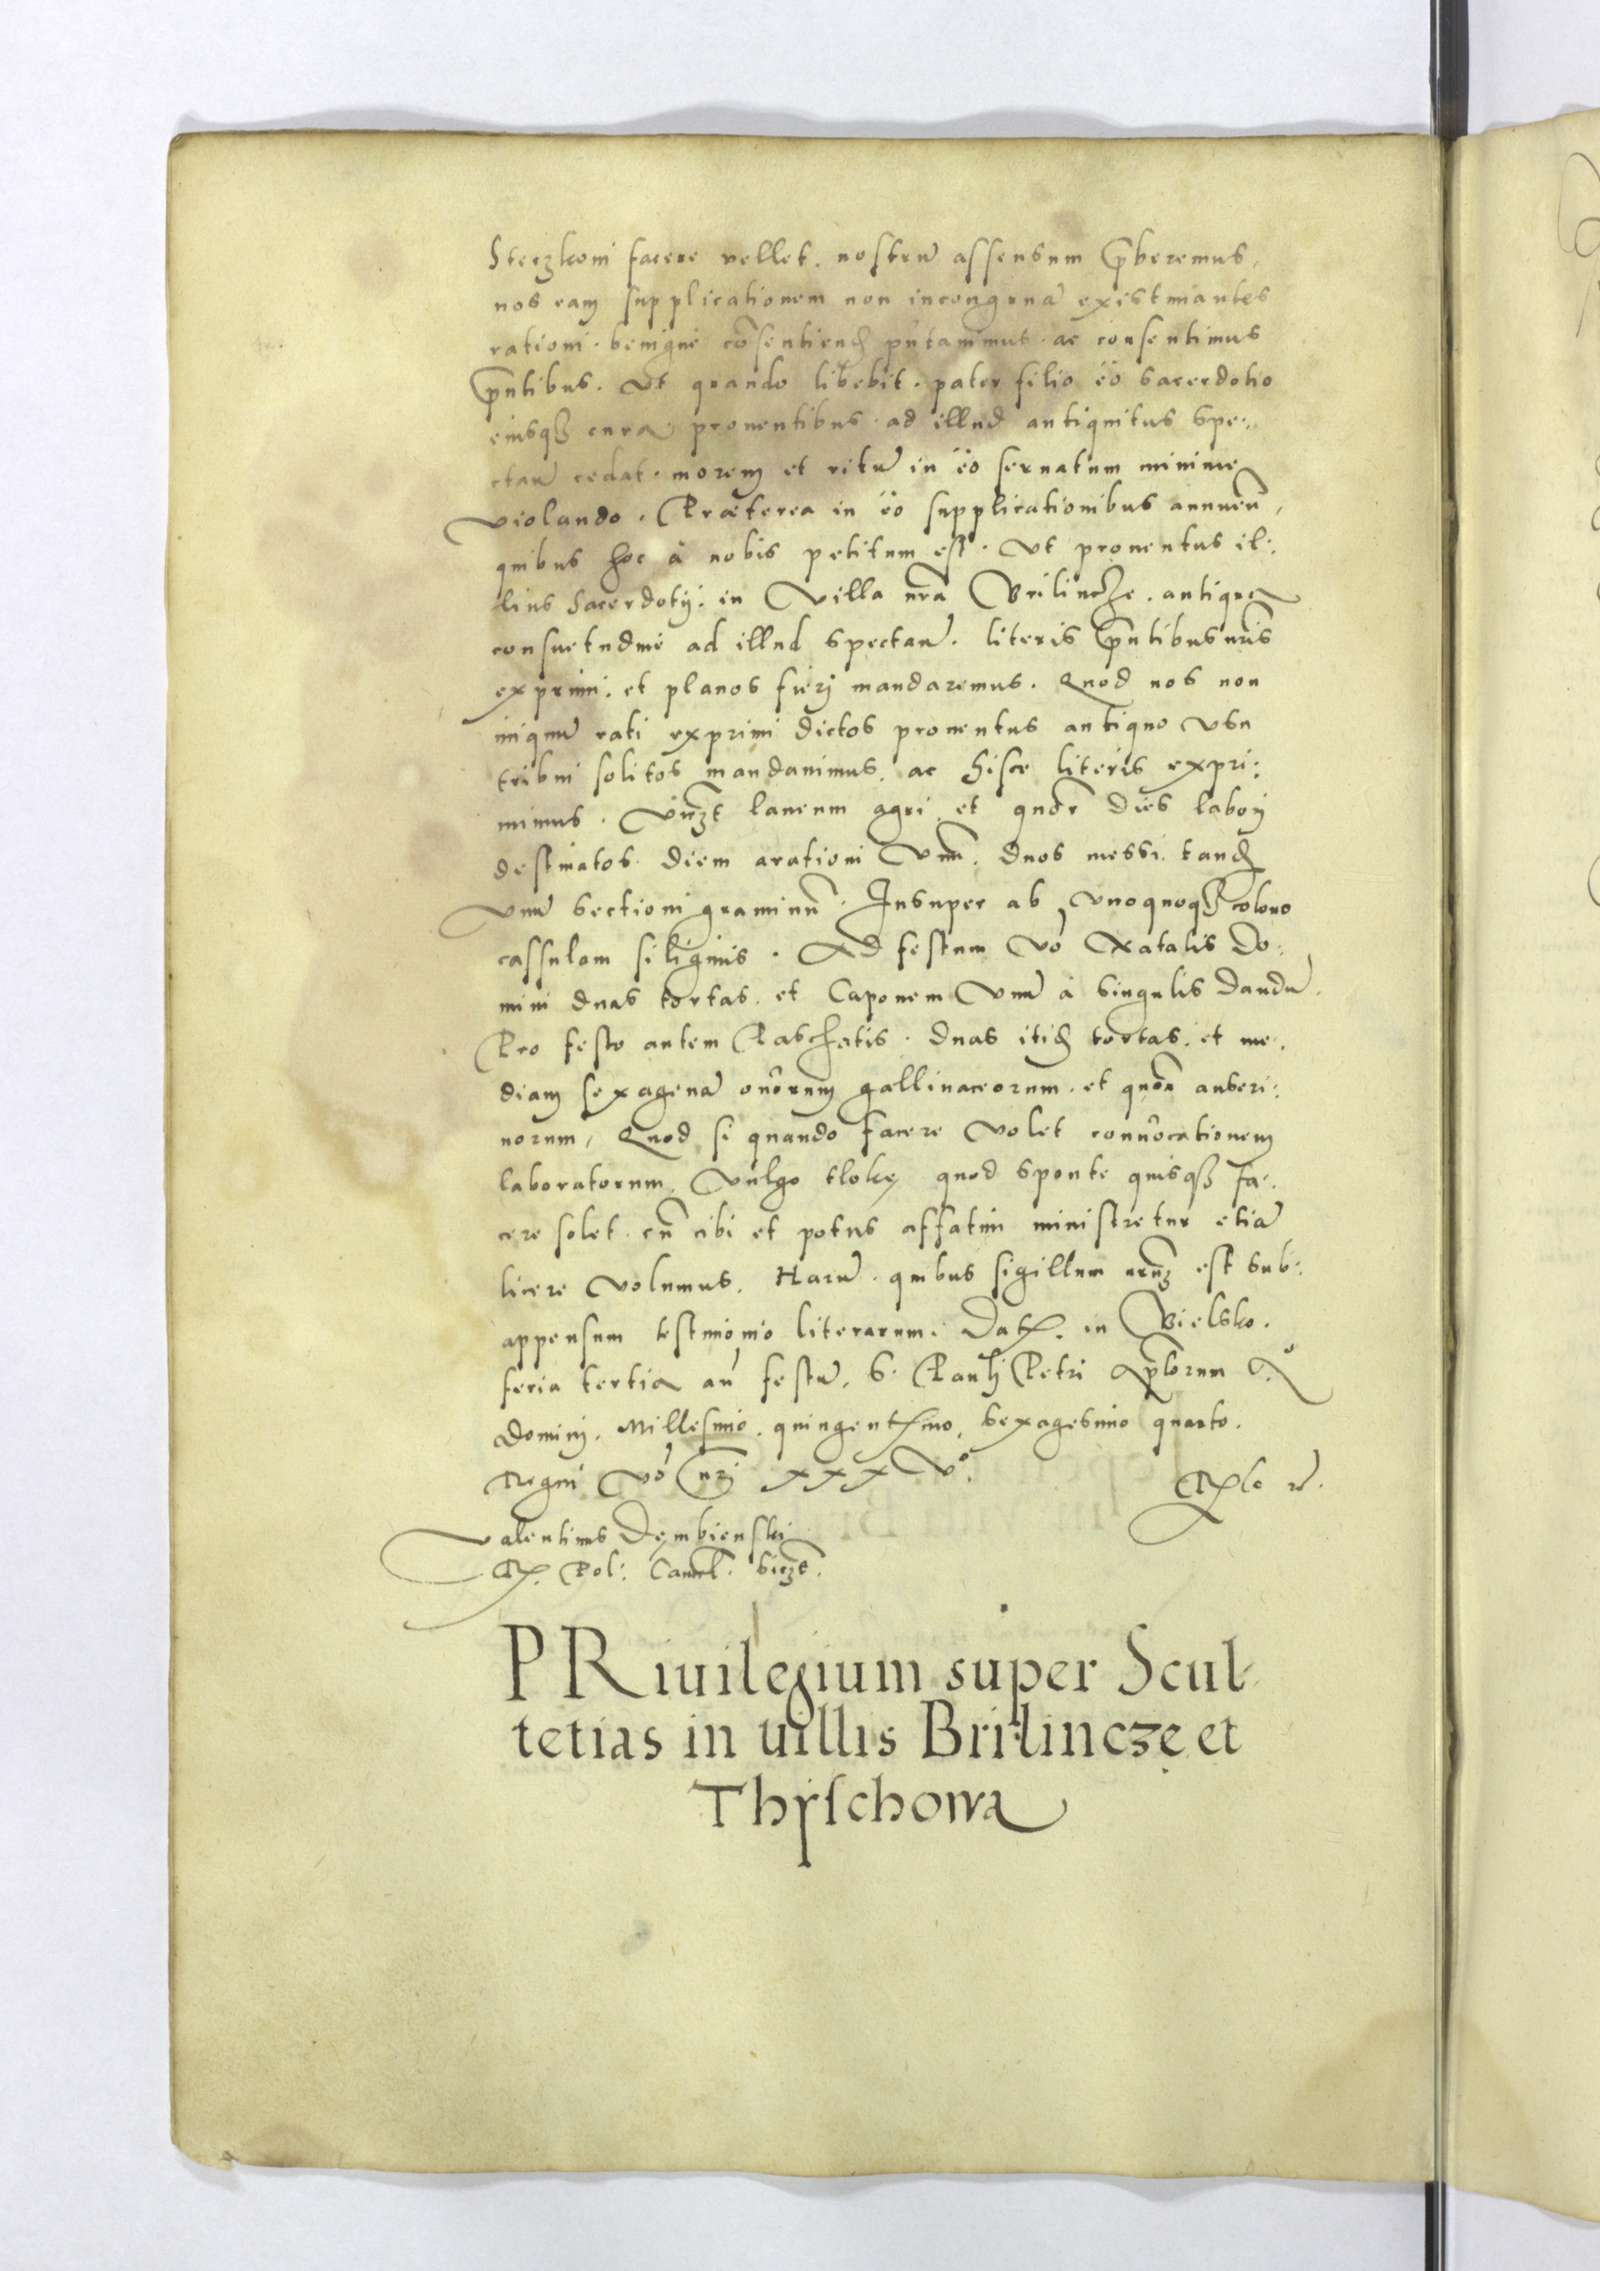 Steczkoni facere vellet. nostrū assensum p̄beremus,
nos eam supplicationem non incongruā existimantes
rationi. benigne cōsentiend̄ putauimus. ac consentimus
p̄ntibus. Vt quando libebit. pater filio eo sacerdotio
eiusq3 cura prouentibus ad illud antiquitus spe:
ctan̄ cedat. morem et ritū in eo seruatum minime
violando. Præterea in eo supplicationibus annuen̄,
quibus hoc à nobis petitum est. Vt prouentus il:
lius Sacerdotij. in Villa nrā Brilincze. antiqua
consuetudine ad illud spectan̄. literis p̄ntibus nr̄is
exprimi. et planos fieri mandaremus. Quod nos non
iniquū rati exprimi dictos prouentus antiquo vsu
tribui solitos mandauimus, ac hisce literis expri:
mimus. Vn̄zt laneum agri et quor̄ dies labori
destinatos. diem arationi Vnū. duos messi. tand̄
vnū sectioni graminū. Insuper ab vnoquoq3 colono
cassulam siliginis. Ad festum vo Natalis Do:
mini duas tortas. et Caponem Vnū à singulis dandū.
Pro festo autem Paschatis. duas itid̄ tortas. et me:
diam sexagenā ouorum gallinaceorum. et quor̄ anseri:
norum, Quod si quando facere Volet conuocationem
laboratorum, Vulgo tloky quod sponte quisq3 fa:
cere solet. cū cibi et potus affatim ministretur etiā
licere Volumus. Harū. quibus sigillum nrūm est sub:
appensum testimonio literarum. Dat. in Bielsko.
feria tertia an̄ festū. S. Pauli Petri Ap̄lorum A°.
Domini. Millesimo. quingent̄mo, sexagesimo quarto.
Regni vo nr̄i xxxv°.
Valentinus Dembienski
R. Pol: Canc̄l.
PRiuilegium super Scul-
tetias in uillis Brilincze et
Thyschowa